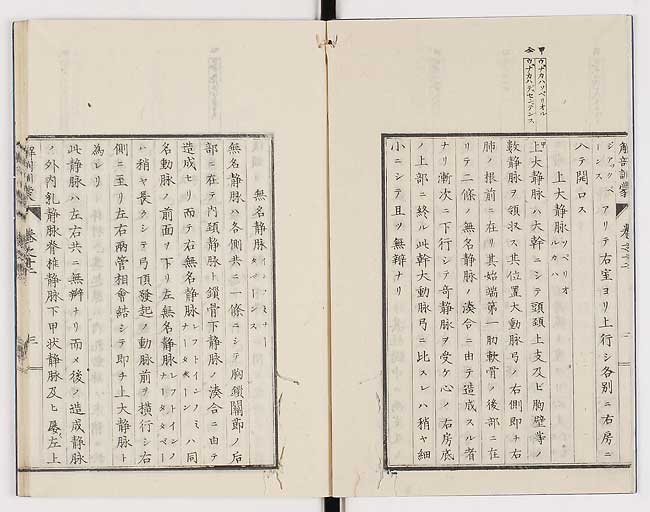 甲 ウナカハソペリオル
仝 ウナカハデセンデンス
解剖訓蒙
ジアックベーンス アリテ右室ヨリ上行シ各別ニ右房ニ
ハテ開口ス
上大静脉 ソペリオルカハ
上大静脉ハ大幹ニシテ頭頚上支及ヒ胸壁等ノ
数静脉ヲ領收ス其位置大動脉弓ノ右側即チ右
肺ノ根前ニ在リ其始端第一肋軟骨ノ後部ニ在
リテ二條ノ無名静脉ノ湊合ニ由テ造成スル者
ナリ漸次ニ下行シテ奇静脉ヲ受ケ心ノ右房底
ノ上部ニ終ル此幹大動脉弓ニ比スレハ稍ヤ細
小ニシテ且ツ無辨ナリ
無名静脉
無名静脉ハ各側共ニ一條ニシテ胸鎖關節ノ后
部ニ在テ内頚静脉ト鎖骨下静脉ノ湊合ニ由テ
造成セリ而テ右無名静脉ハ同
名動脉ノ前面ヲ下リ左無名静脉
ハ稍ヤ長クシテ弓頂發起ノ動脉前ヲ横行シ右
側ニ至リ左右兩管相會結シテ即チ上大静脉ト
為レリ
此静脉ハ左右共ニ無辨ナリ而メ後ノ造成静脉
ノ外内乳静脉脊椎静脉下甲状静脉及ヒ左上
三